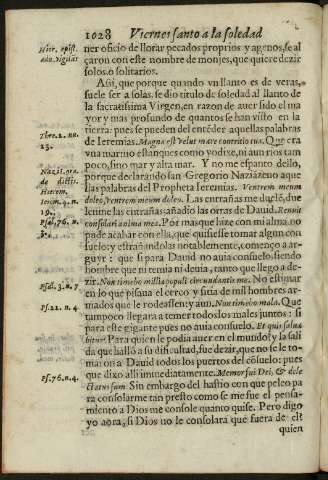 1028 Viernes santo a la soledad
ner oficio de llorar pecados proprios y agenos, se al
çaron con este nombre de monjes, que quiere dezir
solos, o solitarios.
Assi, que porque quando vn llanto es de veras,
suele ser a solas, se dio titulo de soledad al llanto de
la sacratissima Virgen, en razon de auer sido el ma
yor y mas profundo de quantos se han visto en la
tierra: pues se pueden del entēder aquellas palabras
de Ieremias. Magna est velut mare contritio tua. Que era
vna marmo estanques como vodise, ni aun rios tam
poco, sino mar y alta mar. Y no me espanto dello,
porque declarando san Gregorio Naziāzeno aque
llas palabras del Propheta Ieremias. Ventrem meum
doleo, ventrem meum doleo. Las entrañas me duelē, due
lenme las entrañas; añadio las otras de Dauid. Renuit
consolari anima mea. Por mas que hize con mi alma, no
pude acabar con ella, que quisiesse tomar algun con
suelo: y estrañandolas notablemente, començo a ar-
guyr: que si para Dauid no auia consuelo, siendo
hombre que ni temia ni deuia, tanto que llego a de-
zir. Non timebo millia populi circundantis me. No estimar
en lo que pisaua el cerco y sitia de mil hombres ar-
mados que le rodeassen: y aun, Non timebo mala. Que
tampoco llegara a temer todos los males juntos: si
para este gigante pues no auia consuelo. Et quis salua
bitur. Para quien le podia auer en el mundo? y la sali
da que hallò a su dificultad, fue dezir, que no se le to-
maron a Dauid todos los puertos del cōsuelo: pues
que dixo alli immediatamente. Memor fui Dei, & dele
ctatus sum. Sin embargo del hastio con que peleo pa
ra consolarme tan presto como se me fue el pensa-
miento a Dios me consolè quanto quise. Pero digo
yo aora, si Dios no le consolara què fuera de el?
quien
Hier. epist.
ad
Thre. 2. nu.
13.
Nazi.
Hierem.
Ierem. 4. n.
19.
Psal. 76. n.
Psal. 3. n. 7
Ps. 22. n. 4.
Ps. 76. n. 4.